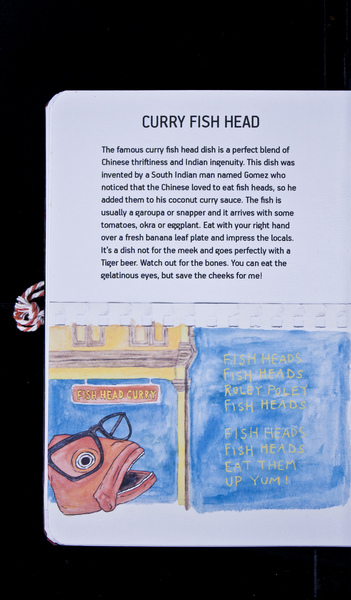 CURRY FISH HEAD
The famous curry fish head dish is a perfect blend of
Chinese thriftiness and Indian ingenuity. This dish was
invented by a South Indian man named Gomez who
noticed that the Chinese loved to eat fish heads, so he
added them to his coconut curry sauce. The fish is
usually a garoupa or snapper and it arrives with some
tomatoes, okra or eggplant. Eat with your right hand
over a fresh banana leaf plate and impress the locals.
It's a dish not for the meek and goes perfectly with a
Tiger beer. Watch out for the bones. You can eat the
gelatinous eyes, but save the cheeks for me!
FISH HEAD CURRY
FISH HEADS
FISH HEADS
ROLEY POLEY
FISH HEADS
FISH HEADS
FISH HEADS
EAT THEM
UP YUM!